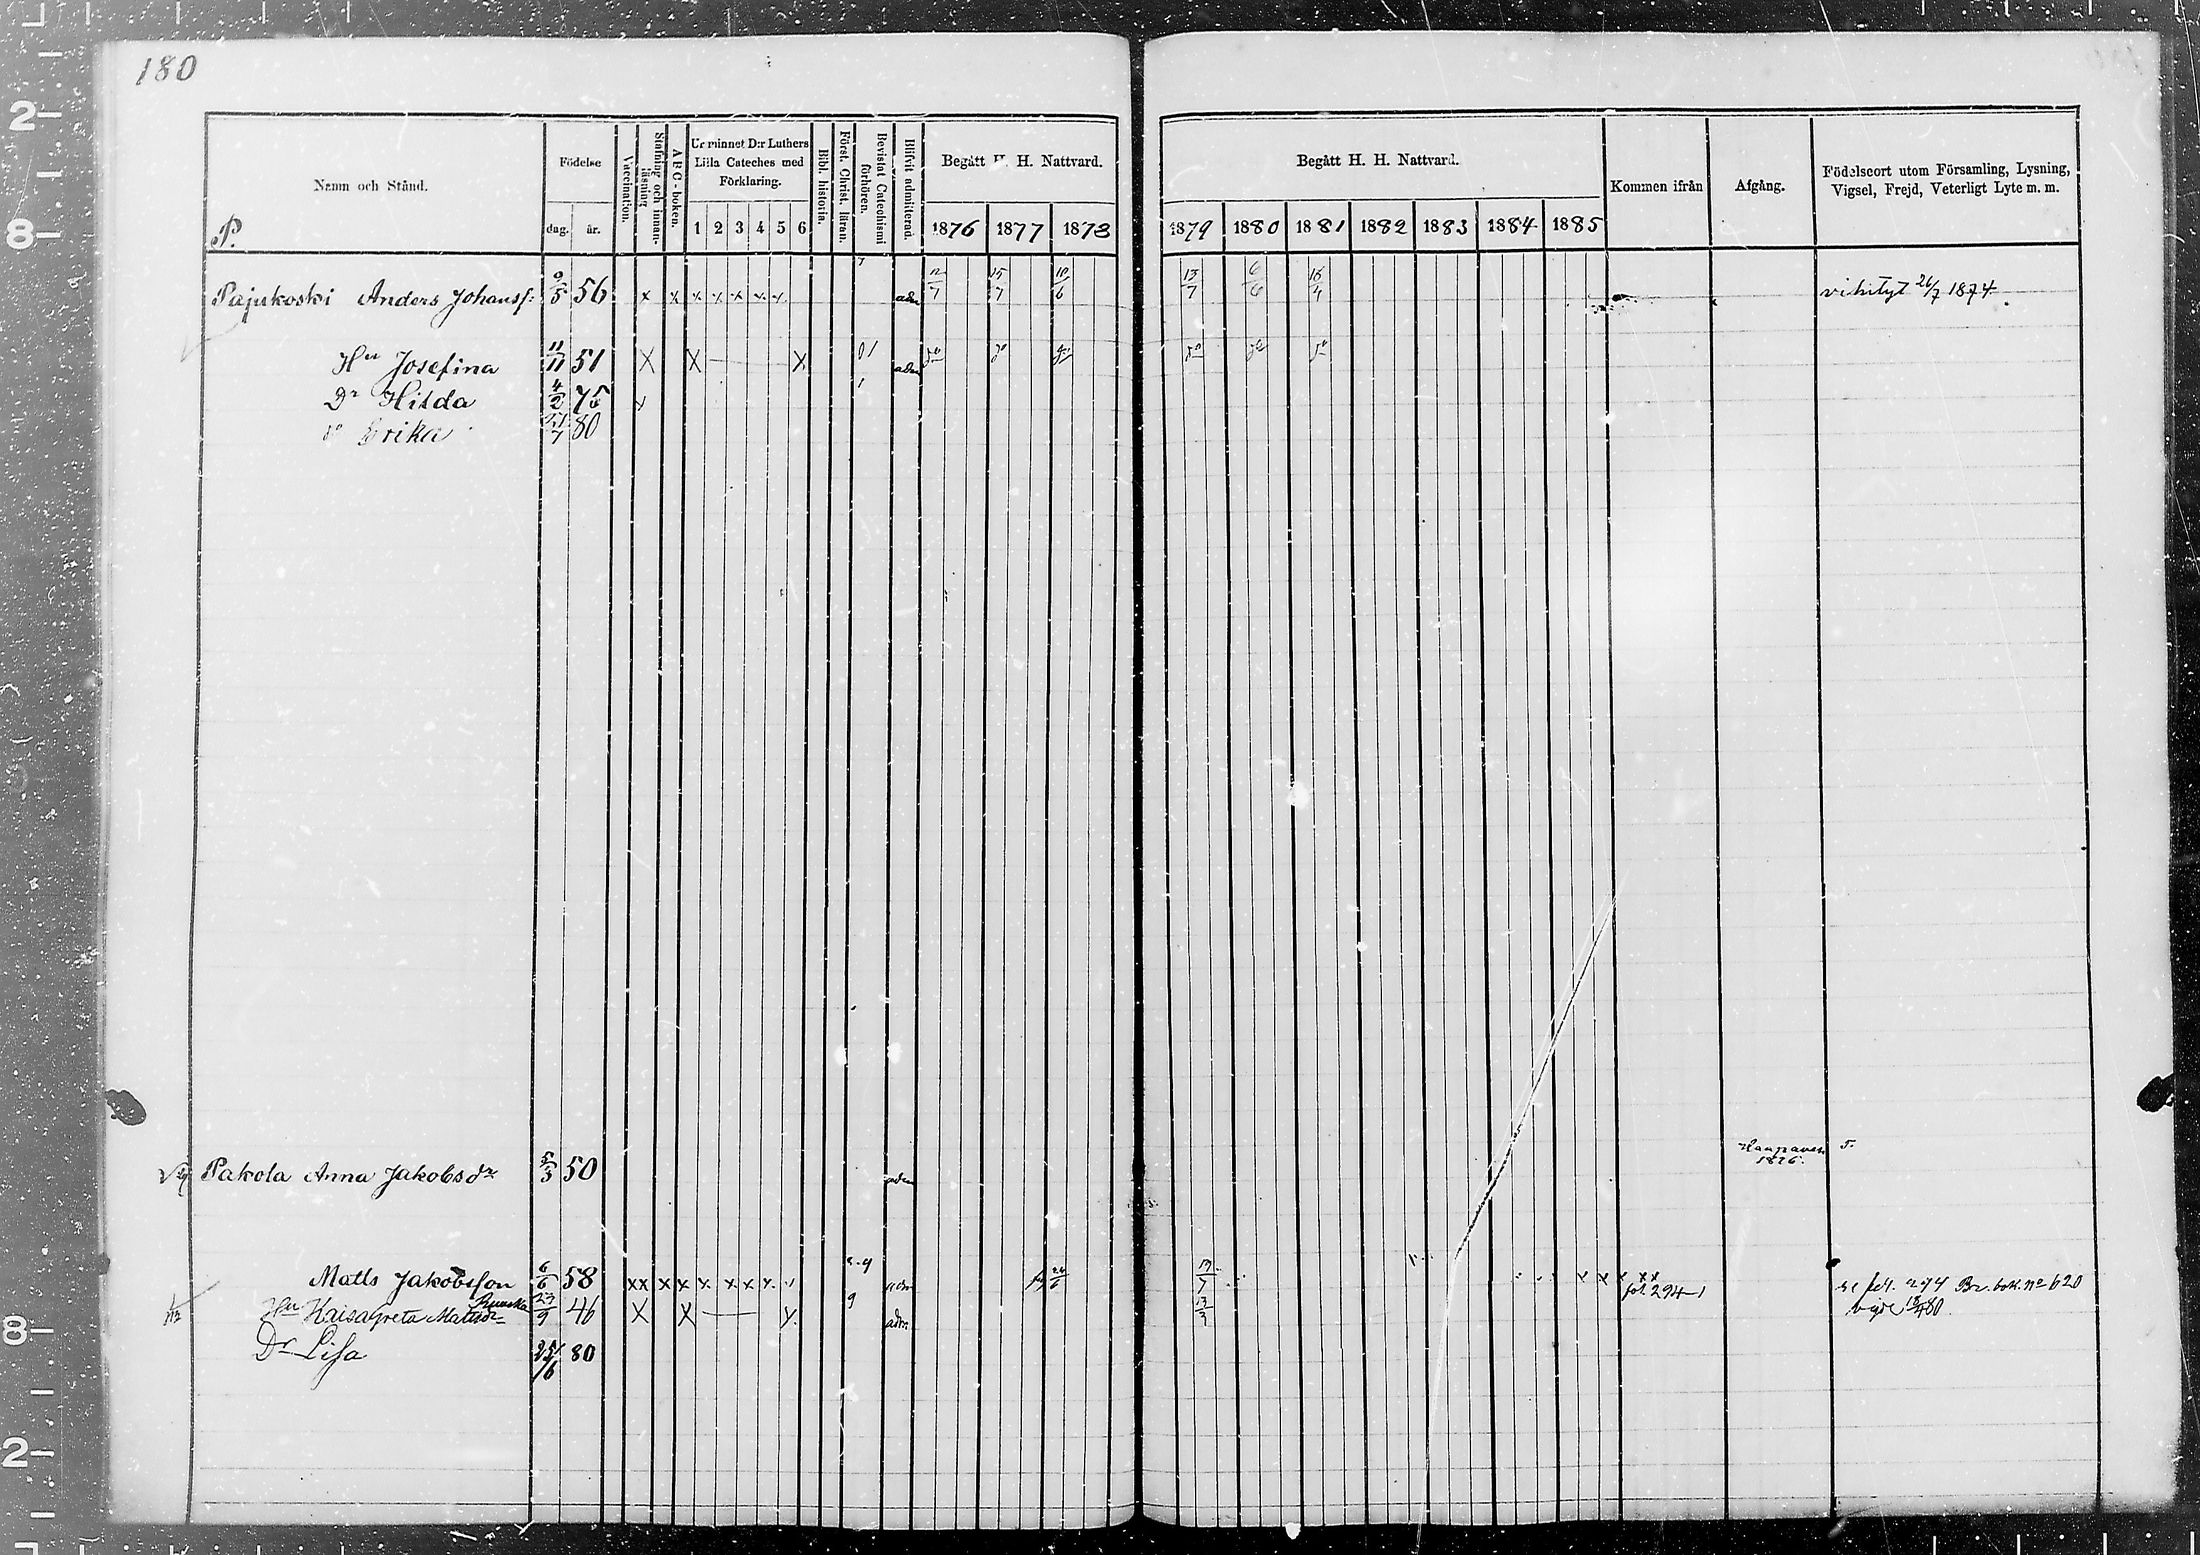 180
Namn och Stånd.
P.
Födelse
dag. år.
Vaccination.
Stafning och innan-läsning
A B C-boken.
Ur minnet D:r Luthers Lilla Cateches med Förklaring.
1 2 3 4 5 6
Bibl. historia.
Först. Christ. läran.
Bevistat Catechismi förhören.
Blifvit admitterad.
Begått H. H. Nattvard.
1876 1877 1878
Begått H. H. Nattvard.
1879 1880 1881 1882 1883 1884 1885
Kommen ifrån
Afgång.
Födelseort utom Församling, Lysning, Vigsel, Frejd, Veterligt Lyte m. m.
Pajukoski Anders Johansf: 56 x x x x x x x adm 12/7 15/7 10/6 13/7 6/6 vihityt 26/7 1874
Hu Josefina 11/11 51 X X — X adm do do do do do do
Dr Hilda 4/2 75
do Erika 80
Haapaves
1876.
Pakola Anna Jakobsdr 5/3 50 adm
Matts Jakobsson 6/6 58 xx x x x x x x adm 24/6 fol. 294 Br. bok. no 620
Hu Kaisa Greta Mattsdr 23/9 46 X X — adm
Dr Lisa 80